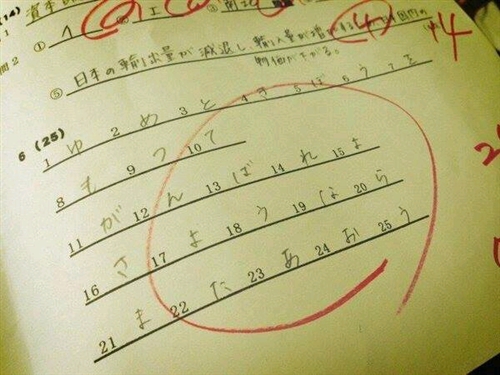 (14) 資本
1 ① イ ② エ ③
問2
⑤ 日本の輸出量が減退し、輸入量が増 国内の
物価が下がる。
+4
6 (25)
1 ゆ 2 め 3 と 4 き 5 ぼ 6 う 7 を
8 も 9 っ 10 て
11 が 12 ん 13 ば 14 れ 15 よ
16 さ 17 よ 18 う 19 な 20 ら
21 ま 22 た 23 あ 24 お 25 う